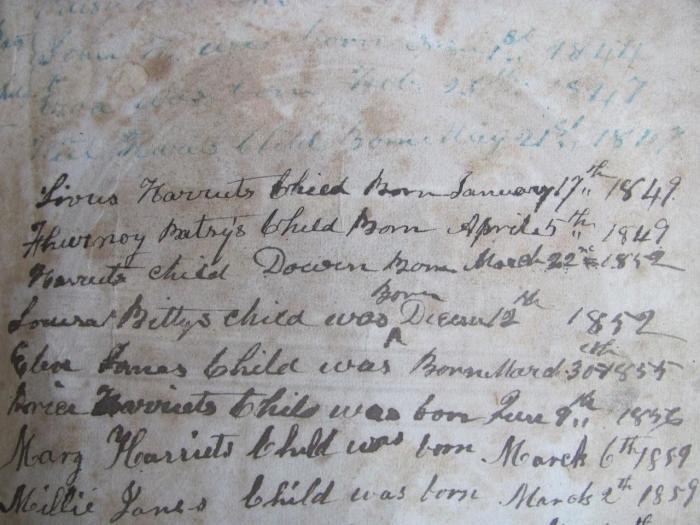 John was born 1st 1844
was born Feb 28th 1847
Harriets Child Born May 21st 1847
Livus Harriets Child Born January 17th 1849.
Flurnoy Batsy's Child Born April 5th 1849
Harriets child Downn Born March 22nd 1852
Louisa Bettys child was Born Decem 12th 1852
Elen Janes Child was Born March 30th 1855
Harriets Child was born June 9th 1856
Mary Harriets Child was born March 6th 1859
Millie Janes Child was born March 2th 1859